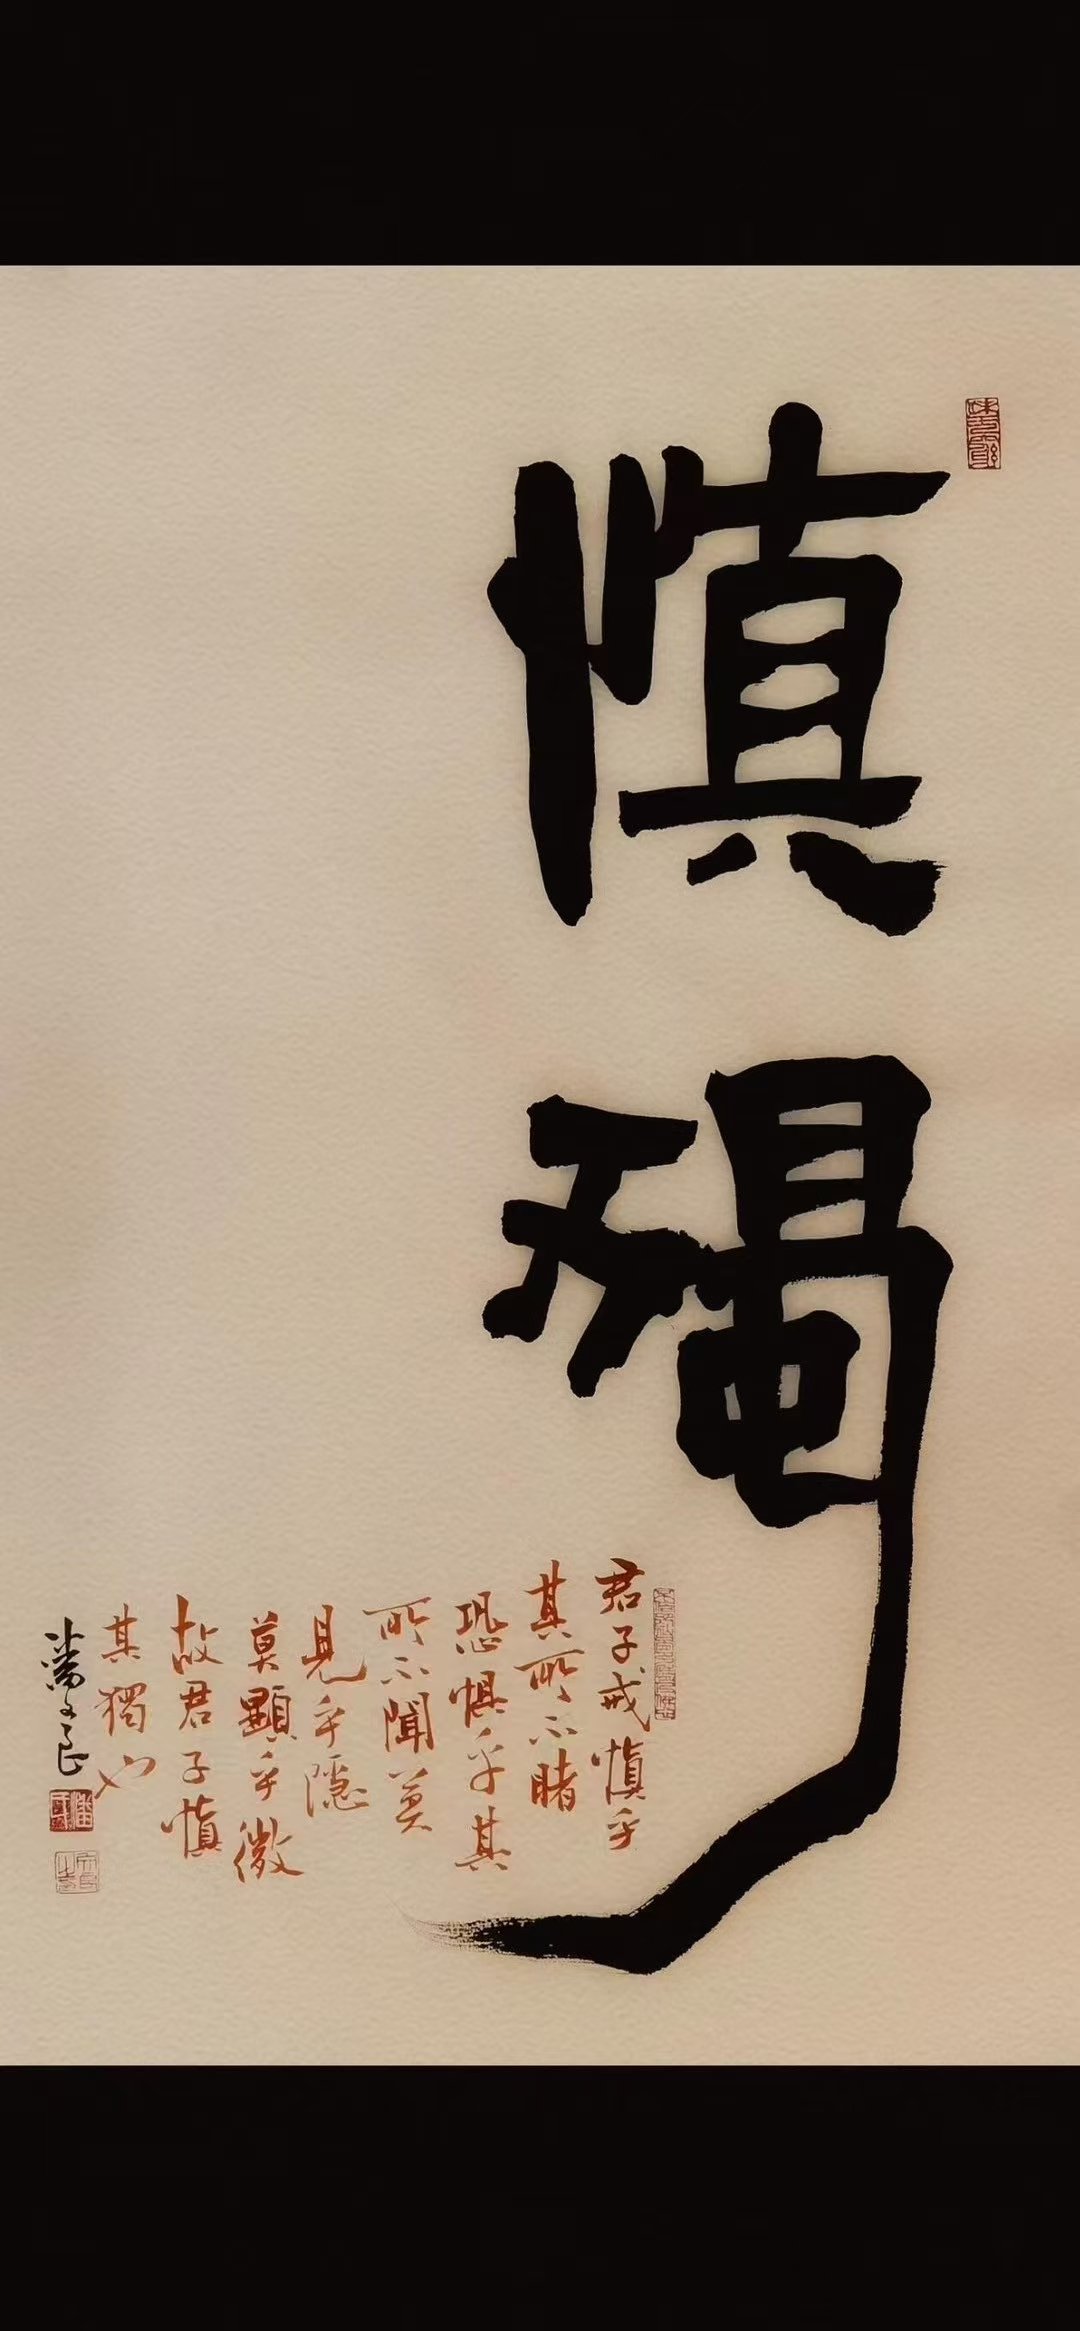 慎獨
君子戒慎乎
其所不睹
恐懼乎其
所不聞莫
見乎隱
莫顯乎微
故君子慎
其獨也
潘文良